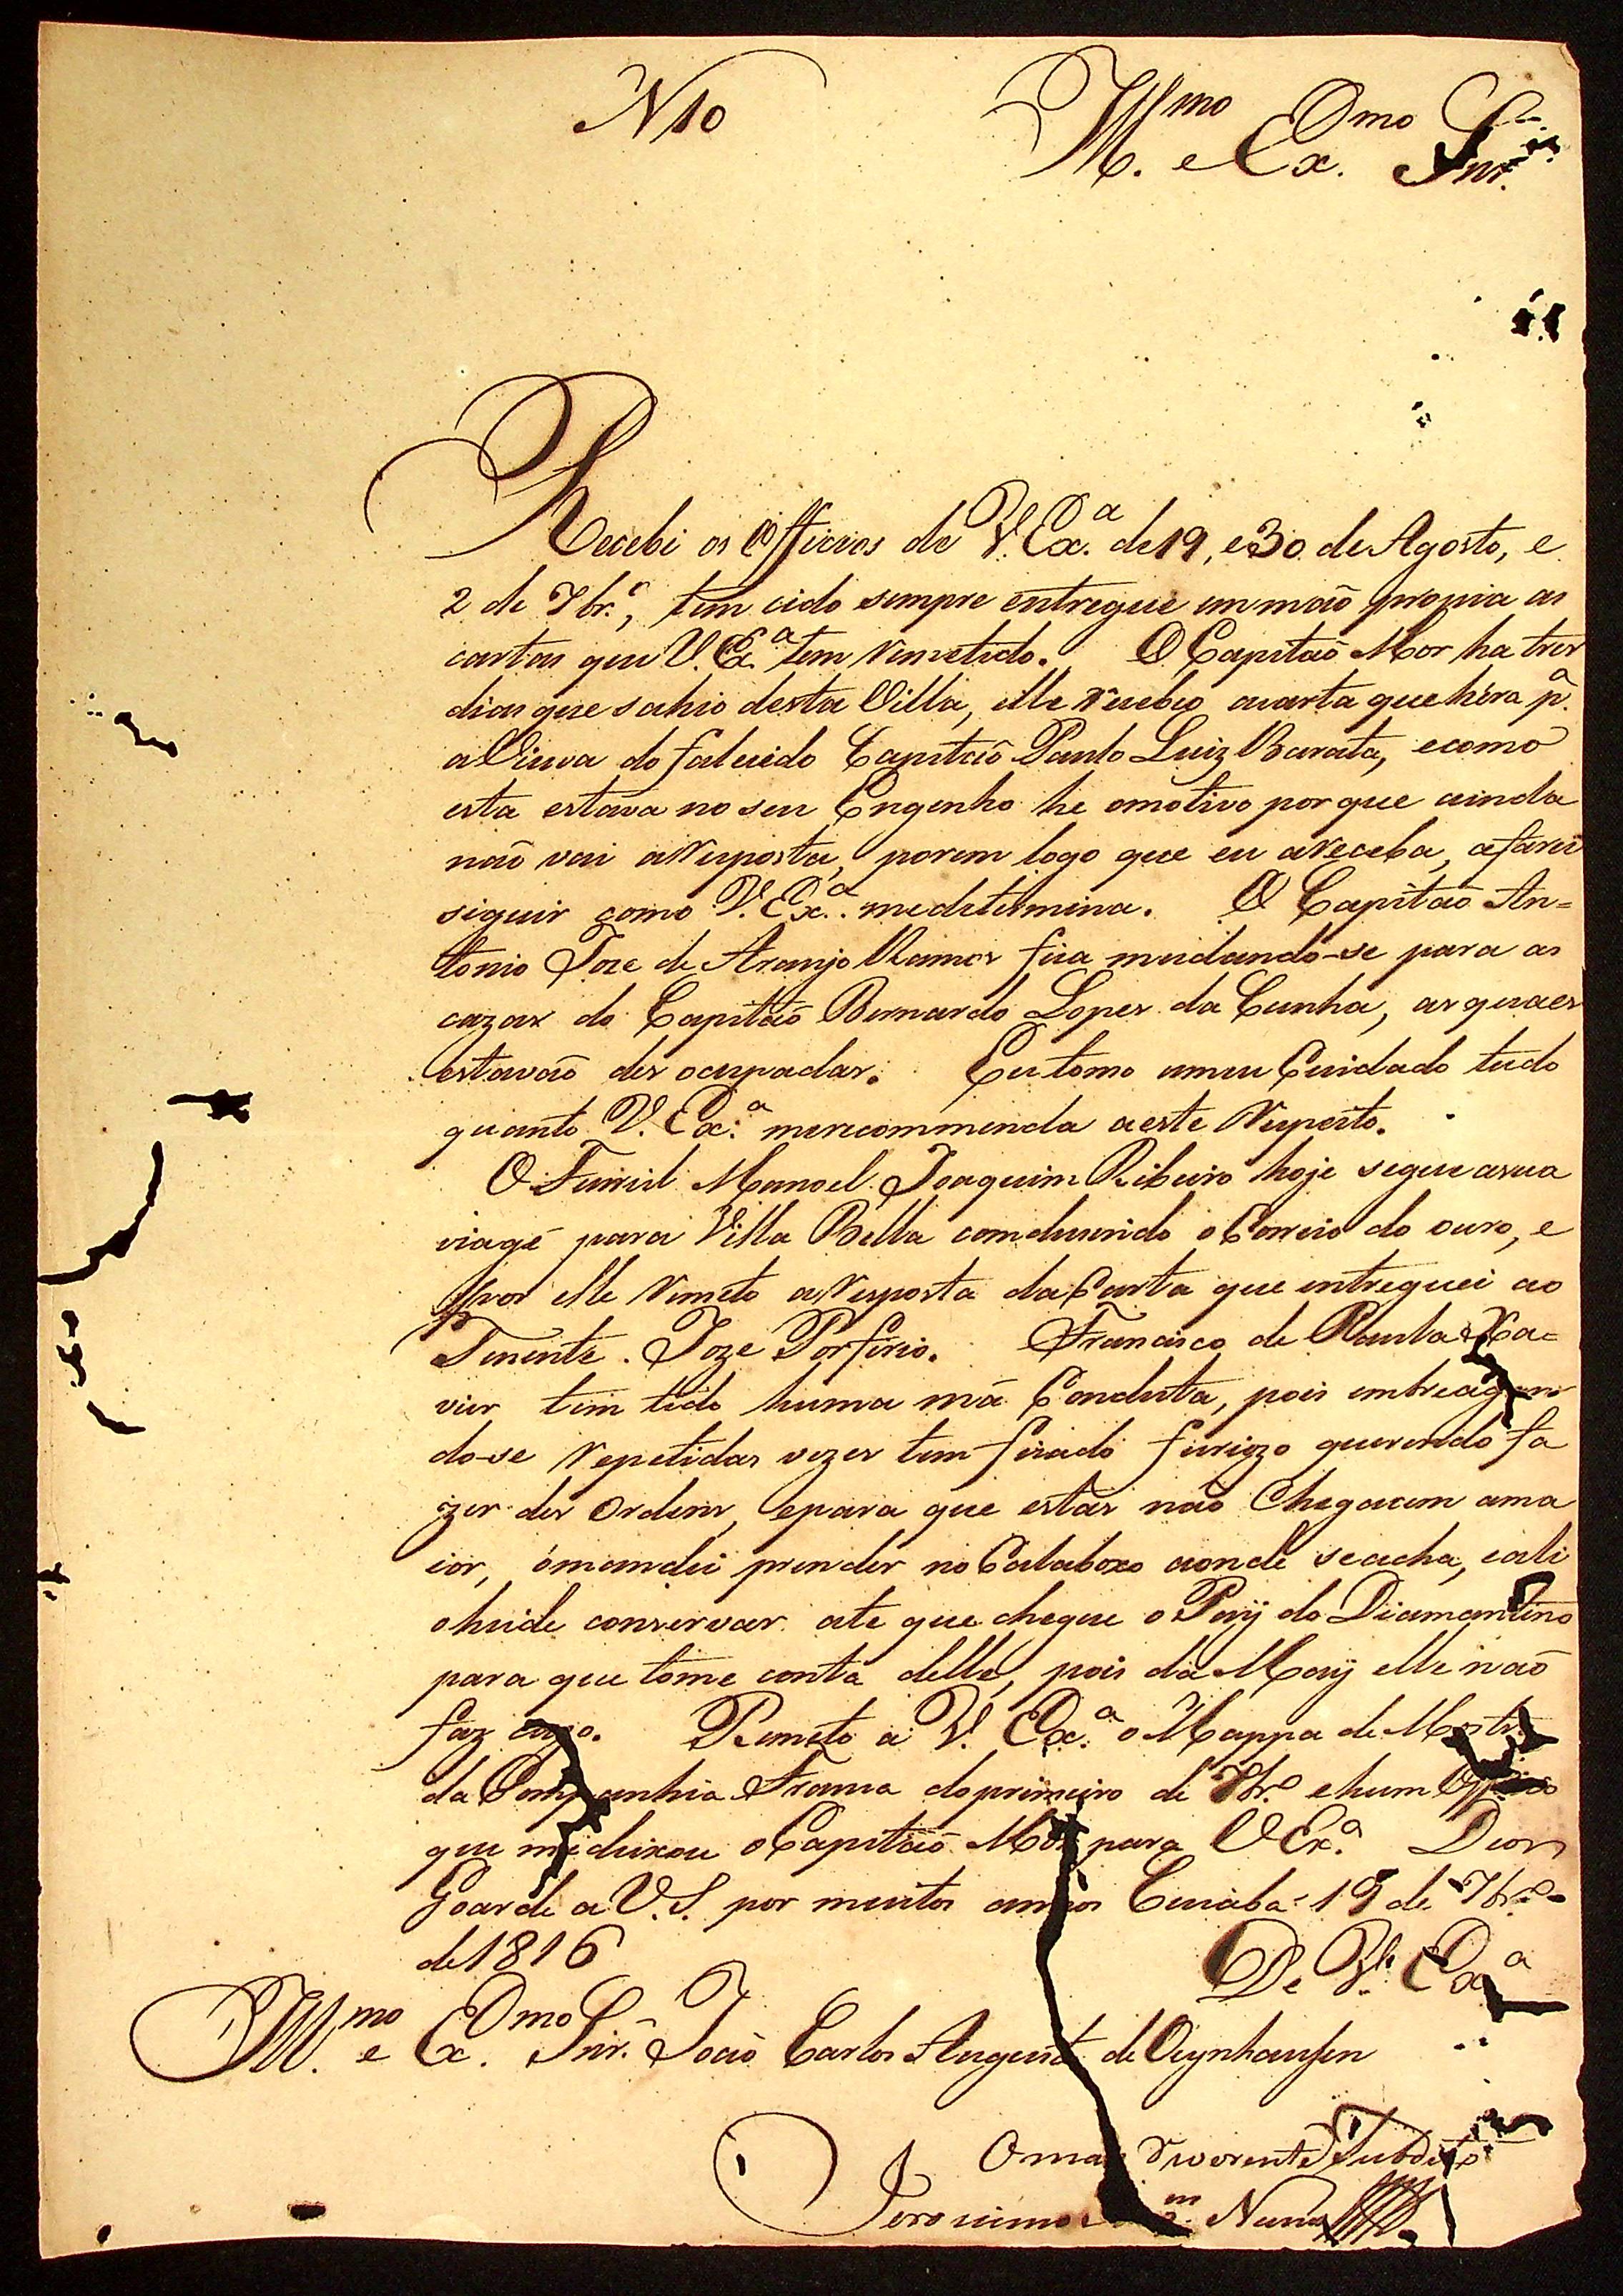 N 10
Ill.mo e Ex.mo Snr.
Recebi os Officios de V. Ex.a de 19, e 30 de Agosto, e
2 de 7br.o, tem cido sempre entregue em mão propia as
cartas que V. Ex.a tem remetido. O Capitaõ Mor ha tres
dias que sahio desta Villa, elle recebeo acarta que hera p.a
a Viuva do falecido Capitaõ Paulo Luiz Barata, ecomo
esta estava no seu Engenho he omotivo porque ainda
naõ vai aresposta, porem logo que eu areceba, afarei
siguir como V. Ex.a medetermina. O Capitaõ An=
tonio Joze de Araujo Ramos fica mudando-se para as
cazas do Capitaõ Bernardo Lopes da Cunha, as quaes
estavaõ des ocupadas. Eu tomo ameu Cuidado tudo
quanto V. Ex.a merecommenda aeste Respeito.
O Furriel Manoel Joaquim Ribeiro hoje segue asua
viagẽ para Villa Bella comduzindo o Correio do ouro, e
por elle Remeto aResposta da Carta que entreguei ao
Tenente Joze Porfirio. Francisco de Paula Xa=
vier tem tido huma má Conduta, pois embreagan
do-se Repetidas vezes tem ficado furiozo querendo fa
zer des Ordens, epara que estas naõ Chegacem ama
ior, omandei prender no Calaboxo aonde seacha, eali
oheide conservar ate que chegue o Paÿ do Diamantino
para que tome conta delle, pois da Maÿ elle naõ
faz cazo. Remeto a V. Ex.a o Mappa de Mostr.
da Companhia Franca doprimeiro de 7br.o ehum Officio
que medeixou oCapitaõ Mor para V Ex.a Deos
Goarde a V. S. por muitos annos Cuiabá 19 de 7br.o
de 1816
De V. Ex.a
Ill.mo e Ex.mo Snr. Joaõ Carlos Augusto de Oeynhausen
Omais Reverente Subdito
Jeronimo Nunes